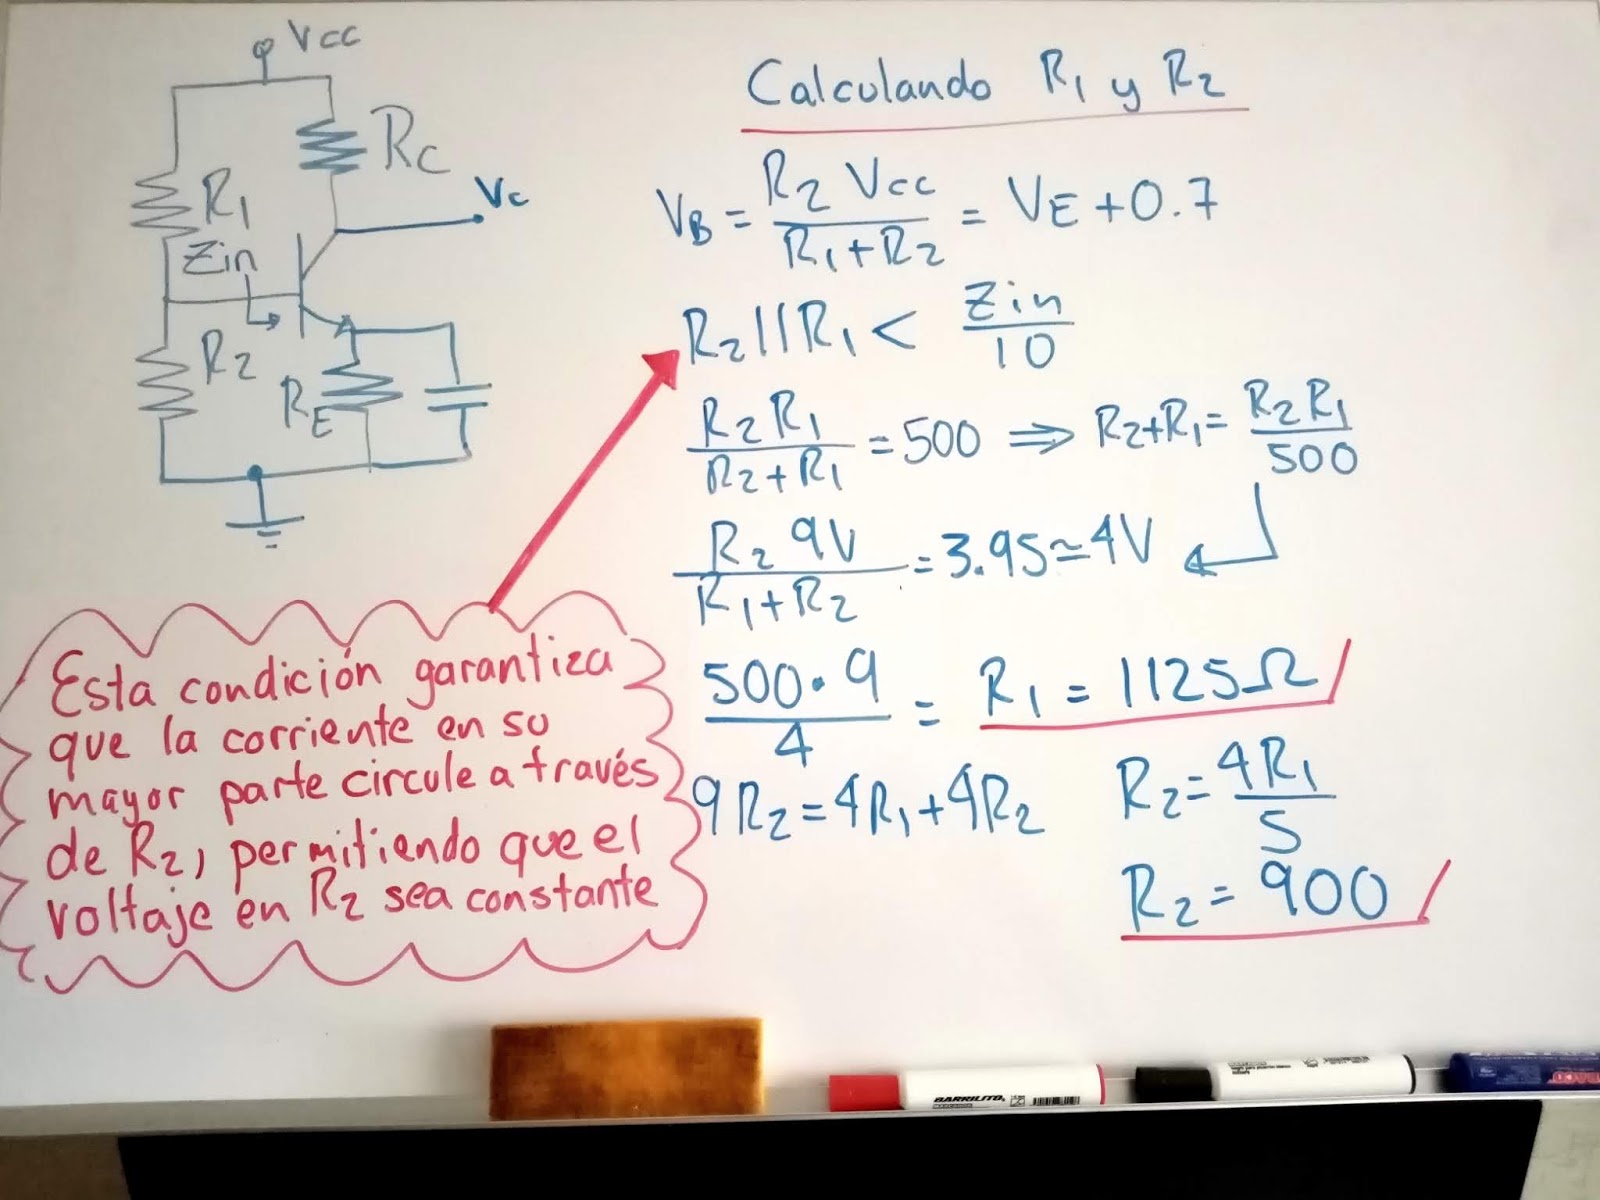 Vcc
Rc
Vc
R1
Zin
R2
RE
Calculando R1 y R2
VB = R2 Vcc / R1+R2 = VE+0.7
R2||R1 < Zin / 10
R2 R1 / R2+R1 = 500 ⇒ R2+R1 = R2 R1 / 500
R2 9V / R1+R2 = 3.95≃4V
500·9 / 4 = R1 = 1125Ω
9R2=4R1+4R2
R2= 4R1 / 5
R2= 900
Esta condición garantiza
que la corriente en su
mayor parte circule a través
de R2, permitiendo que el
voltaje en R2 sea constante
BARRILITO